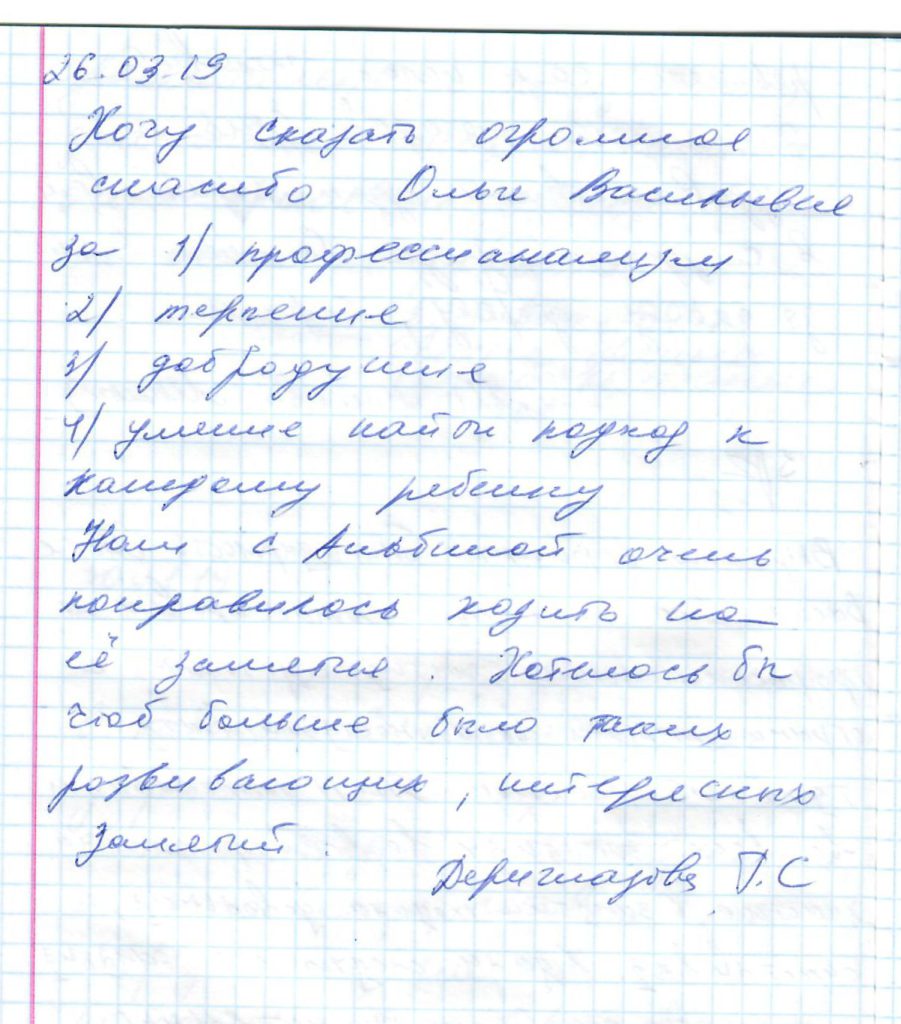 26.03.19
Хочу сказать огромное
спасибо Ольги Васильевне
за 1) профессианализм
2) терпение
3) добродушие
4) умение найти подход к
каждому ребенку
Нам с Альбиной очень
понравилось ходить на
её занятия. Хотелось бы
чтоб больше было таких
развивающих, интересных
занятий.
Дериглазова Т.С